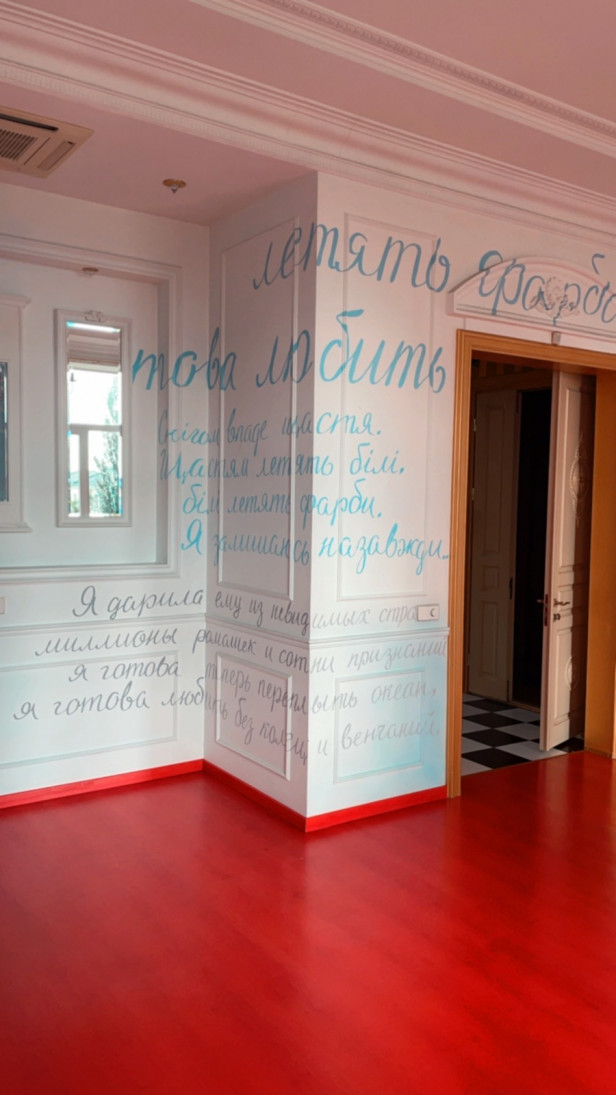 летять фарби
това любить
Снігом впаде щастя.
Щастям летять білі,
білі летять фарби.
Я залишаюсь назавжди...
Я дарила ему из невидимых стра
миллионы ромашек и сотни признаний
я готова теперь переплыть океан,
я готова любить без колец и венчаний,